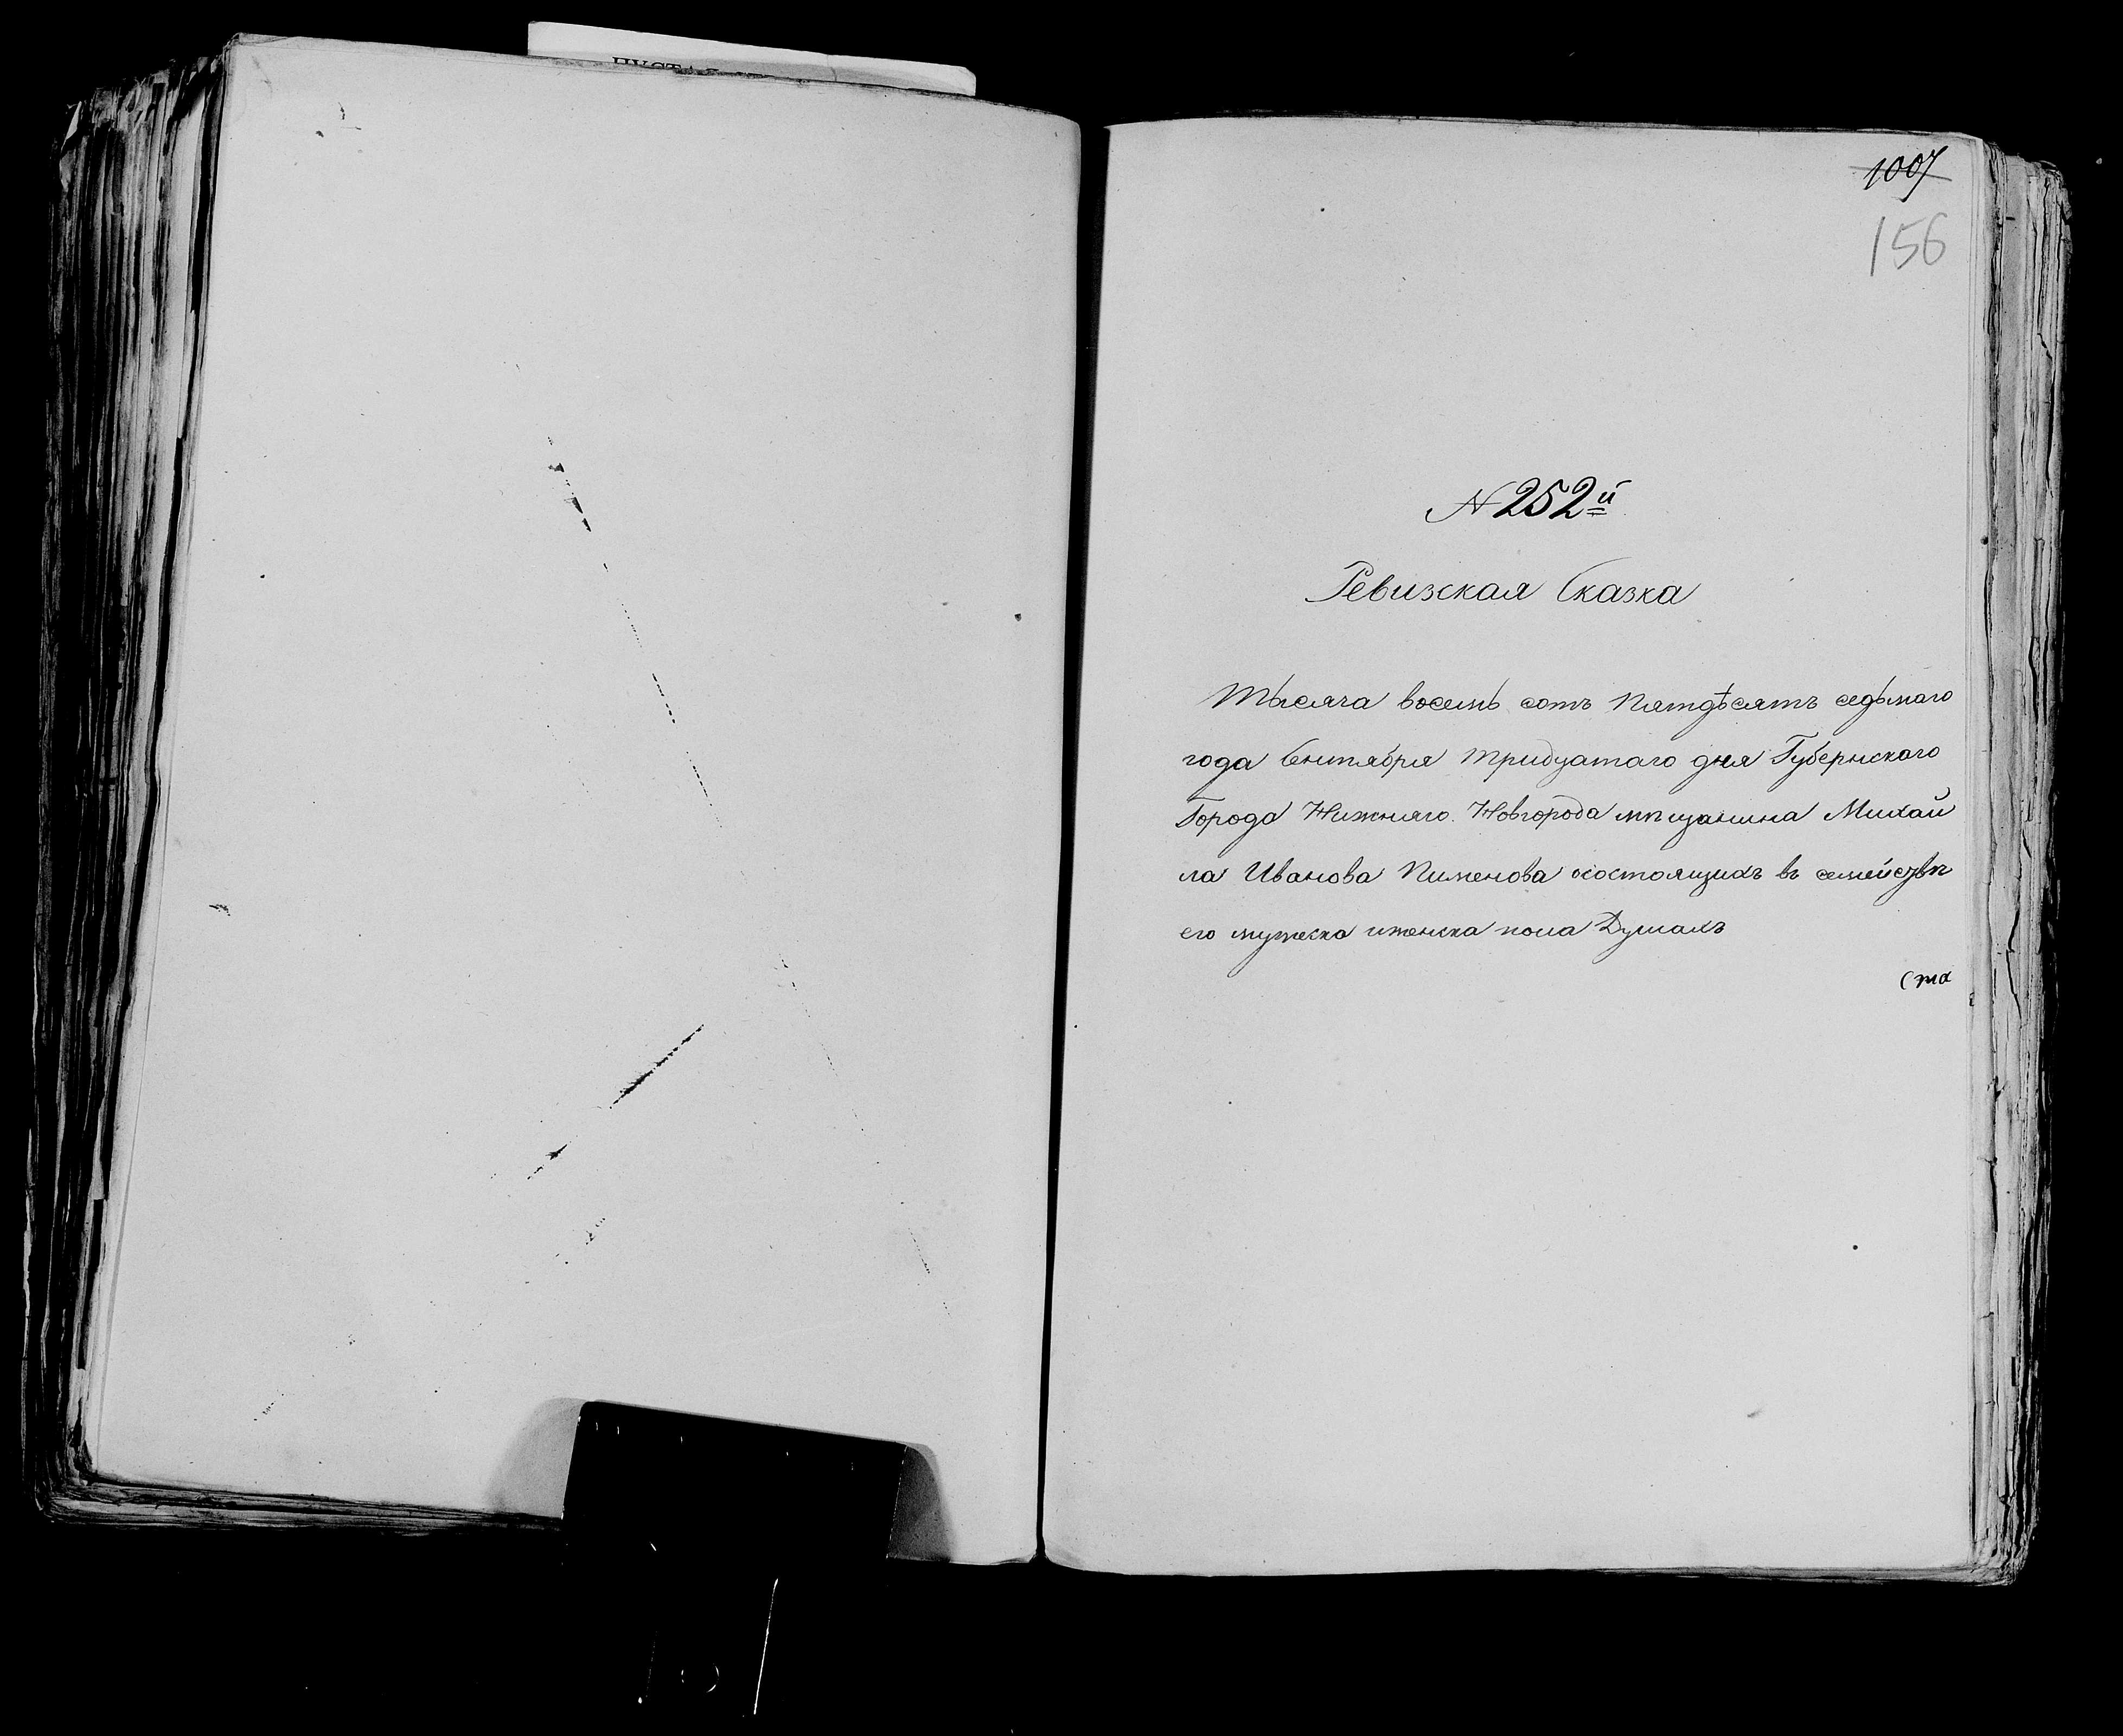 1007
156
N 252й
Ревизская Сказка
Тысяча восемь сотъ Пятдѣсятъ седьмаго
года Сентября тридцатаго дня Губернскаго
Города Нижняго Новгорода мѣщанина Михаи
ла Иванова Пименова осостоящихъ въ семействѣ
его мужеска иженска пола Душахъ